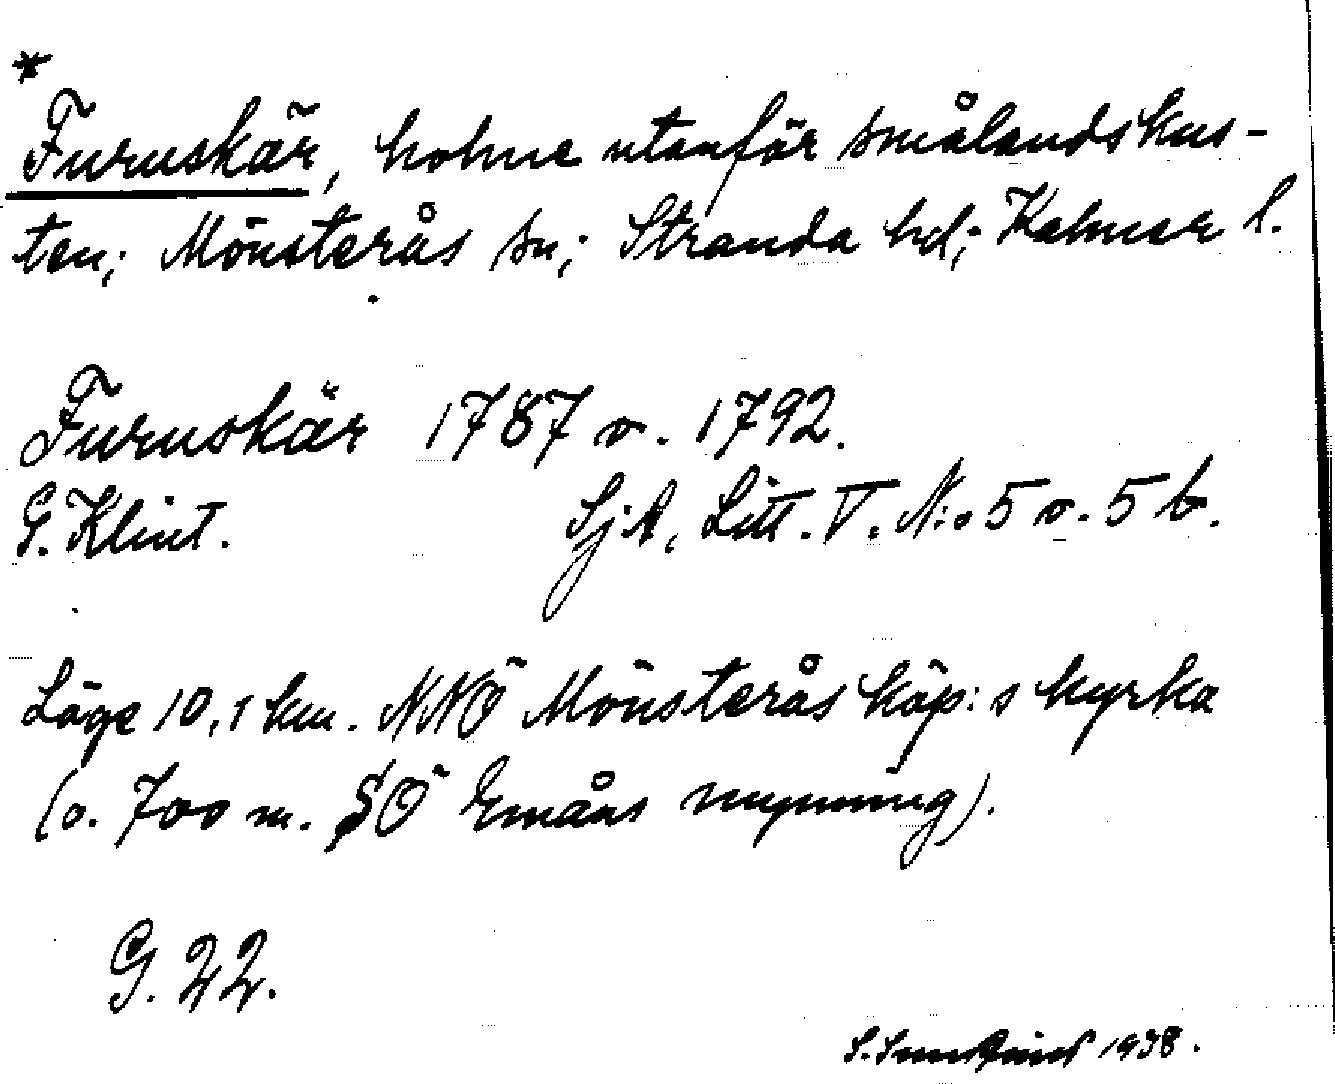 *
Furuskär, holme utanför smålandskus-
ten; Mönsterås sn; Stranda hd; Kalmar l.
Furuskär 1787 o. 1792.
G. Klint. SjA, Litt. V. N:o 5 o. 5 b.
Läge 10,1 km. NNÖ Mönsterås köp:s kyrka
(o. 700 m. SÖ Emåns mynning).
G. 22.
S. 1938.